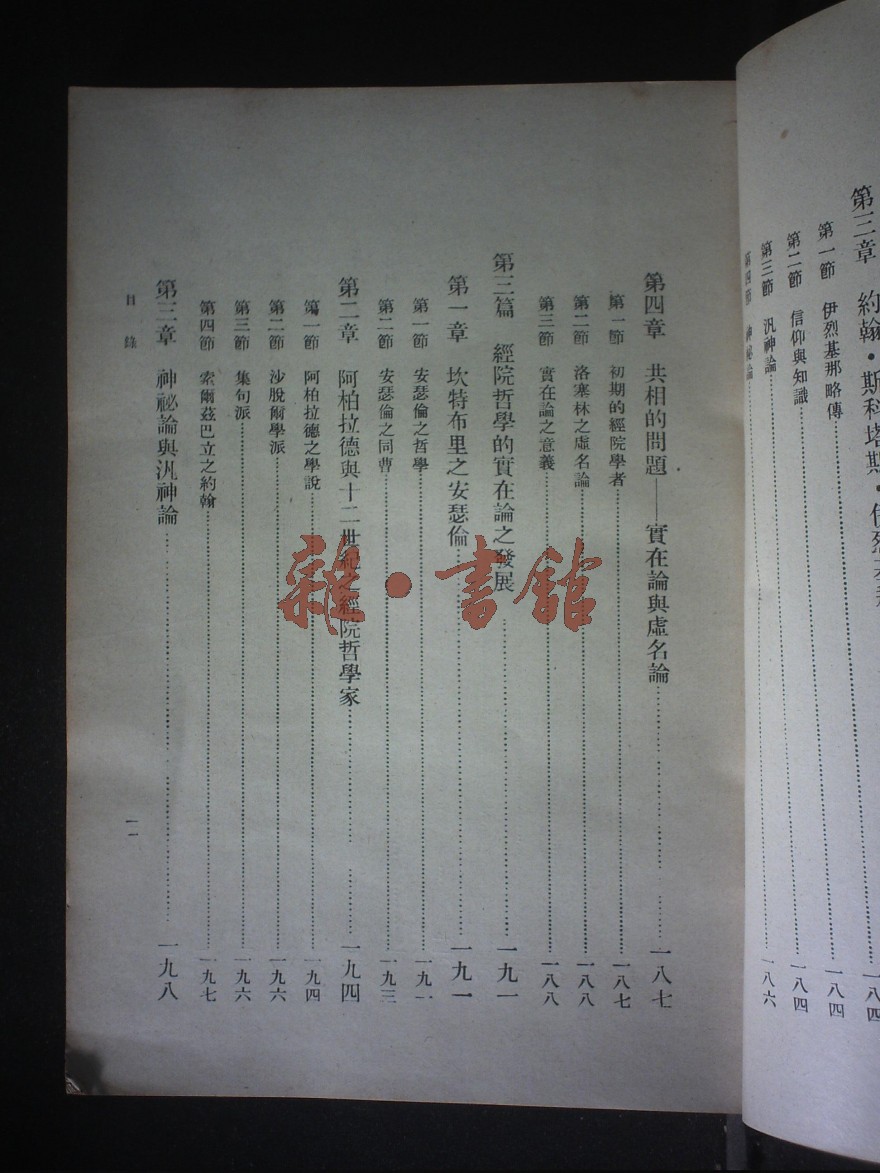 第三章　約翰・斯科塔斯・伊烈基……一八四
第一節　伊烈基那略傳……一八四
第二節　信仰與知識……一八四
第三節　汎神論……一八六
第四節　神祕論
第四章　共相的問題——實在論與虛名論……一八七
第一節　初期的經院學者……一八七
第二節　洛塞林之虛名論……一八八
第三節　實在論之意義……一八八
第三篇　經院哲學的實在論之發展……一九一
第一章　坎特布里之安瑟倫……一九一
第一節　安瑟倫之哲學……一九一
第二節　安瑟倫之同曹……一九三
第二章　阿柏拉德與十二世紀之經院哲學家……一九四
第一節　阿柏拉德之學說……一九四
第二節　沙脫爾學派……一九六
第三節　集句派……一九六
第四節　索爾茲巴立之約翰……一九七
第三章　神祕論與汎神論……一九八
目錄
一一
雜・書館